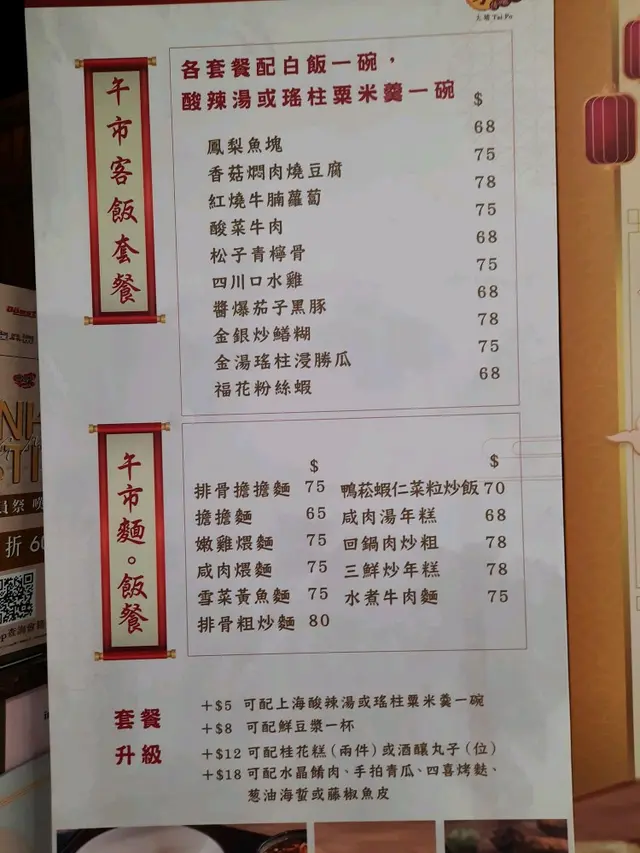 大埔 Tai Po
午市客飯套餐
各套餐配白飯一碗，
酸辣湯或瑤柱粟米羹一碗
$
鳳梨魚塊 68
香菇燜肉燒豆腐 75
紅燒牛腩蘿蔔 78
酸菜牛肉 75
松子青檸骨 68
四川口水雞 75
醬爆茄子黑豚 68
金銀炒鱔糊 78
金湯瑤柱浸勝瓜 75
福花粉絲蝦 68
午市麵。飯餐
$ $
排骨擔擔麵 75 鴨菘蝦仁菜粒炒飯 70
擔擔麵 65 咸肉湯年糕 68
嫩雞煨麵 75 回鍋肉炒粗 78
咸肉煨麵 75 三鮮炒年糕 78
雪菜黃魚麵 75 水煮牛肉麵 75
排骨粗炒麵 80
套餐
升級
+$5 可配上海酸辣湯或瑤柱粟米羹一碗
+$8 可配鮮豆漿一杯
+$12 可配桂花糕（兩件）或酒釀丸子（位）
+$18 可配水晶餚肉、手拍青瓜、四喜烤麩、
葱油海蜇或藤椒魚皮
折 60